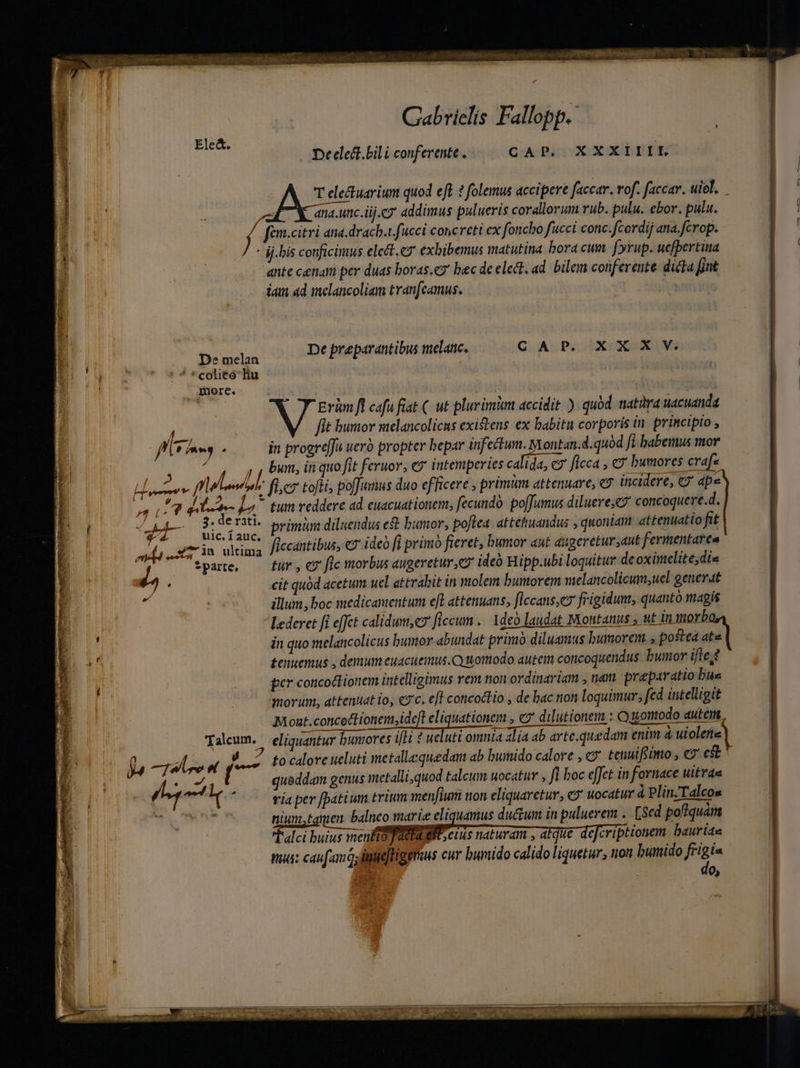 Gabrielis Fallopp.
Elect.
De elect. bili conferente. CAP. XXXIIII.
AT electuarium quod est ? solemus accipere saccar. ros. saccar. uiol.
ana.unc.iij.& addimus pulueris corallorum rub. pulu. ebor. pulu.
sem.citri ana.drach.i.succi concreti ex soncho succi conc.scordij ana.scrop.
ij.his conficimus elect.& exhibemus matutina hora cum syrup. uespertina
ante cœnam per duas horas.& hæc de elect. ad bilem conferente dicta sint
iam ad melancoliam transeamus.
De melan
colico hu
more.
De præparantibus melanc. CAP. XXXV.
VErùm si casu fiat ( ut plurimùm accidit ) quòd natura uacuanda
sit humor melancolicus existens ex habitu corporis in principio,
in progressu uerò propter hepar infectum. Montan.d.quòd si habemus mor
bum, in quo sit feruor, & intemperies calida, & sicca, & humores craſ=
si,& tosti, possumus duo efficere, primùm attenuare, & incidere, & ap=
tum reddere ad euacuationem, secundò possumus diluere,& concoquere.d.
3. de rati.
uic. i auc.
in ultima
parte,
primùm diluendus est humor, postea attenuandus, quoniam attenuatio fit
siccantibus, & ideò si primò fieret, humor aut augeretur,aut fermentare=
tur, & sic morbus augeretur,& ideò Hipp.ubi loquitur de oximelite,di=
cit quòd acetum uel attrahit in molem humorem melancolicum,uel generat
illum, hoc medicamentum est attenuans, siccans,& frigidum, quantò magis
lederet si esset calidum,& siccum. Ideò laudat Montanus, ut in morbo,
in quo melancolicus humor abundat primò diluamus humorem, postea at=
tenuemus, demum euacuemus. Quomodo autem concoquendus humor iste,?
per concoctionem intelligimus rem non ordinariam, nam præparatio hu=
morum, attenuatio, &c. est concoctio, de hac non loquimur, sed intelligit
Mont.concoctionem,idest eliquationem, & dilutionem: Quomodo autem,
Talcum.
eliquantur humores isti ? ueluti omnia alia ab arte.quædam enim à uiolen=
to calore ueluti metalla:quædam ab humido calore, & tenuissimo, & est
quoddam genus metalli,quod talcum uocatur, si hoc esset in fornace uitra=
ria per spatium trium mensium non eliquaretur, & uocatur à Plin.Talco=
nium,tamen balneo mariæ eliquamus ductum in puluerem. [Sed postquàm
Talci huius mentio facta est,eius naturam, atque descriptionem hauria=
mus: causamq; inuestigemus cur humido calido liquetur, non humido frigi=
do,